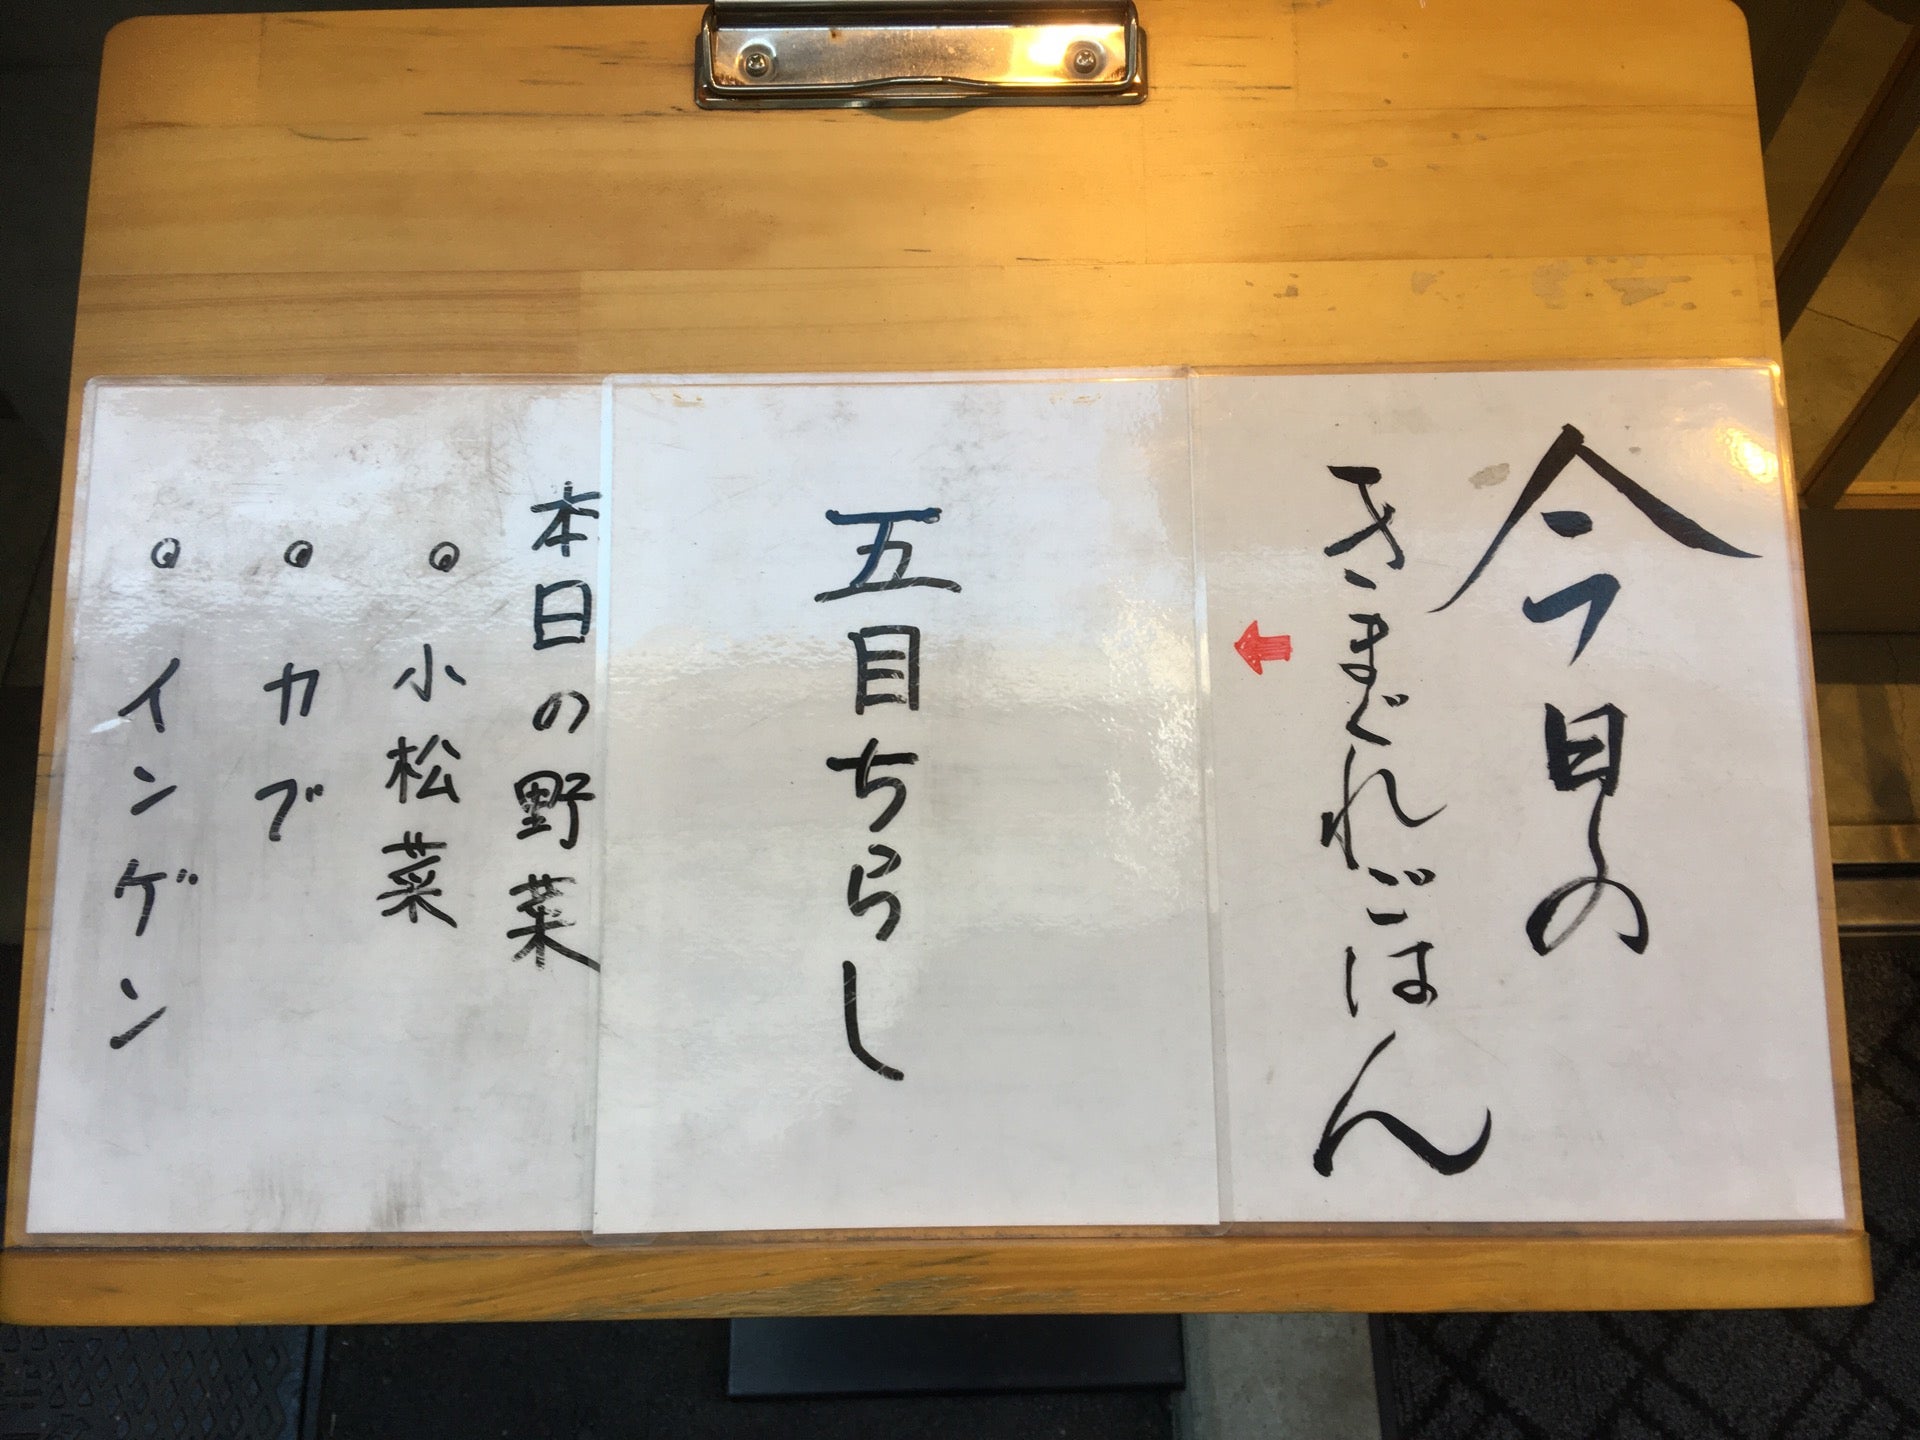 今日の
きまぐれごはん
五目ちらし
本日の野菜
。小松菜
。カブ
。インゲン